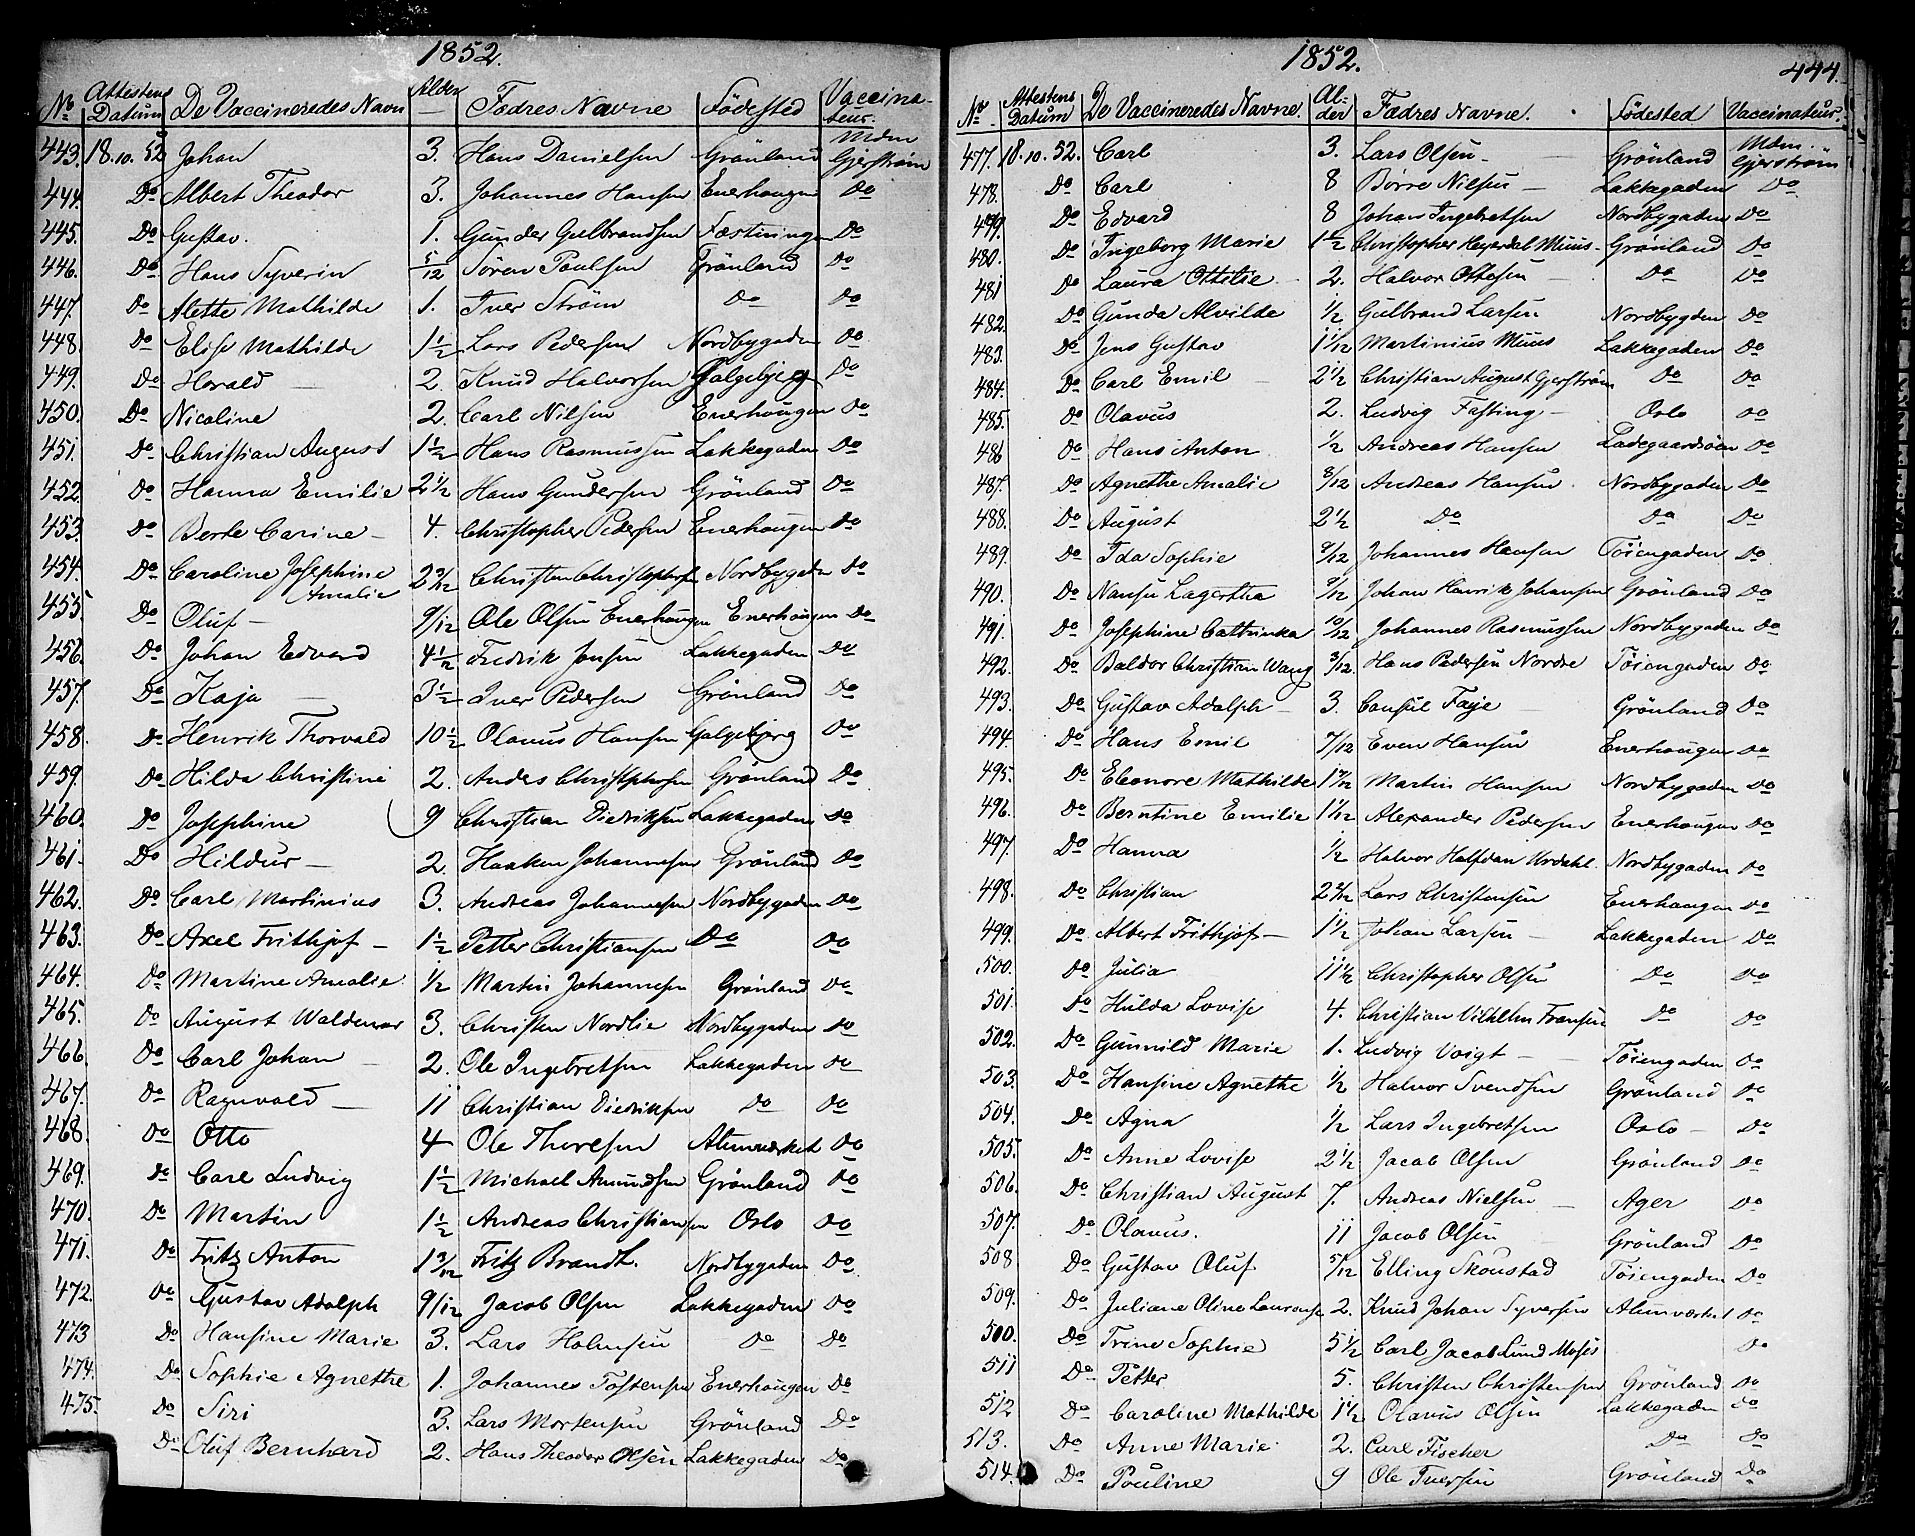 1852.
No Attestens Datum De Vaccineredes Navn Alder Fædres Navne Födested Vaccinateur.
443. 18.10.52 Johan 3. Hans Danielsen Grönland Mdm Gjerstrøm
444. Do Albert Theodor 3. Johannes Hansen Enerhougen Do
445. Do Gustav. 1. Gunder Gulbrandsen Fæstningen Do
446. Do Hans Syverin 5/12 Sören Paulsen Grönland Do
447. Do Alette Mathilde 1. Iver Ström Do Do
448. Do Elise Mathilde 1 1/2 Lars Pedersen Nordbygaden Do
449. Do Horald 2. Knud Halvorsen Galgebjerg Do
450. Do Nicoline 2. Carl Nilsen Enerhougen Do
451. Do Christian August 1 1/2 Hans Rasmussen Lakkegaden Do
452. Do Hanna Emilie 2 1/2 Hans Gundersen Grönland Do
453. Do Berte Carine 4. Christopher Pedersen Enerhougen Do
454. Do Caroline Josephine Amalie Christen Christophersen Nordbygaden Do
455. Do Oluf 9/12 Ole Olsen Enerhougen Enerhougen Do
456. Do Johan Edvard 4 1/2 Fredrik Jensen Lakkegaden Do
457. Do Kaja 3 1/2 Iver Pedersen Grönland Do
458. Do Henrik Thorvald 10 1/2 Olaus Hansen Galgebjerg Do
459. Do Hilda Christine 2. Andes Christophersen Grönland Do
460. Do Josephine 9 Christian Diedriksen Lakkegaden Do
461. Do Hildur 2. Haaken Johannesen Grönland Do
462. Do Carl Martinius 3. Andreas Johannesen Nordbygaden Do
463. Do Axel Frithjof 1 1/2 Petter Christiansen Do Do
464. Do Martine Amalie 1/2 Martin Johannesen Grönland Do
465. Do August Waldemar 3. Christen Nordlie Nordbygaden Do
466. Do Carl Johan 2. Ole Ingebretsen Lakkegaden Do
467. Do Ragnvald 11 Christian Diedriksen Do Do
468. Do Otto 4 Ole Thoresen Alunværket Do
469. Do Carl Ludvig 1 1/2 Michael Amundsen Grönland Do
470. Do Martin 1 1/2 Andreas Christiansen Oslo Do
471. Do Fritz Anton Fritz Brandt. Nordbygaden Do
472. Do Gustav Adolph 9/12 Jacob Olsen Lakkegaden Do
473 Do Hansine Marie 3. Lars Holmsen Do Do
474. Do Sophie Agnethe 1. Johannes Tostensen Enerhougen Do
475. Do Siri 3. Lars Mortensen Grönland Do
Do Oluf Bernhard 2. Hans Theodor Olsen Lakkegaden Do
1852.
444.
No Attestens Datum De Vaccineredes Navne. Alder Fædres Navne. Födested Vaccinateur.
477. 18.10.52. Carl 3. Lars Olsen Grönland Mdm. Gjerstrøm
478. Do Carl 8 Börre Nilsen Lakkegaden Do
499. Do Edvard 8 Johan Ingebretsen Nordbygaden Do
480. Do Ingeborg Marie 1 1/2 Christopher Heyerdal Muus Grönland Do
481 Do Laura Ottilie 2. Halvor Ottosen Do Do
482. Do Gunda Alvilde 1/2 Gulbrand Larsen Nordbygden Do
483. Do Jens Gustav 1 1/12 Martinius Muus Lakkegaden Do
484. Do Carl Emil 2 1/2 Christian August Gjerstrøm Do Do
485. Do Olavus 2. Ludvig Fasting Oslo Do
486 Do Hans Anton 1/2 Andreas Hansen Ladegaardsöen Do
487. Do Agnethe Amalie 8/12 Andreas Hansen. Nordbygaden Do
488. Do August 2 1/2 Do Do Do
489. Do Ida Sophie 9/12 Johannes Hansen Töiengaden Do
490. Do Nansy Lagertha 9/12 Johan Henrik Johansen Grönland Do
491. Do Josephine Cathrinka 10/12 Johannes Rasmussen Nordbygaden Do
492. Do Baldor Christian Wang 3/12. Hans Pedersen Nordre Töiengaden Do
493. Do Gustav Adolph 3. Consul Faye Grönland Do
494 Do Hans Emil 7/12 Even Hansen Enerhougen Do
495. Do Eleonore Mathilde Martin Hansen Nordbygaden Do
496. Do Berntine Emilie 1 1/12 Alexander Pedersen Enerhougen Do
497. Do Hanna 1/2 Halvor Halfdan Urdahl. Nordbygaden Do
498. Do Christian Lars Christensen Enerhaugen Do
499. Do Albert Frithjof 1 1/2 Johan Larsen Lakkegaden Do
500. Do Julia 11 1/2 Christopher Olsen Do Do
501. Do Hulda Lovise 4. Christian Vilhelm Fransen Do Do
502. Do Gunnild Marie 1. Ludvig Voigt Töiengaden Do
503. Do Hansine Agnethe 1/2 Halvor Svendsen Grönland Do
504. Do Agna 1/2 Lars Ingebretsen Oslo Do
505. Do Anne Lovise 2 1/2 Jacob Olsen Grönland Do
506. Do Christian August 7. Andreas Nielsen Ager Do
507. Do Olavus. 11 Jacob Olsen Grönland Do
508 Do Gustav Oluf 5/12 Elling Skoustad Töiengaden Do
509. Do Juliane Oline Lauronse 2. Knud Johan Syversen Alunværket Do
500. Do Trine Sophie 5 1/2 Carl Jacob Lund Moses Do
511 Do Petter 5. Christen Christensen Grönland Do
512 Do Caroline Mathilde 1 1/2 Olavus Olsen Lakkegaden Do
513. Do Anne Marie 2. Carl Fischer Do Do
514. Do Pouline 9 Ole Iversen Grönland Do